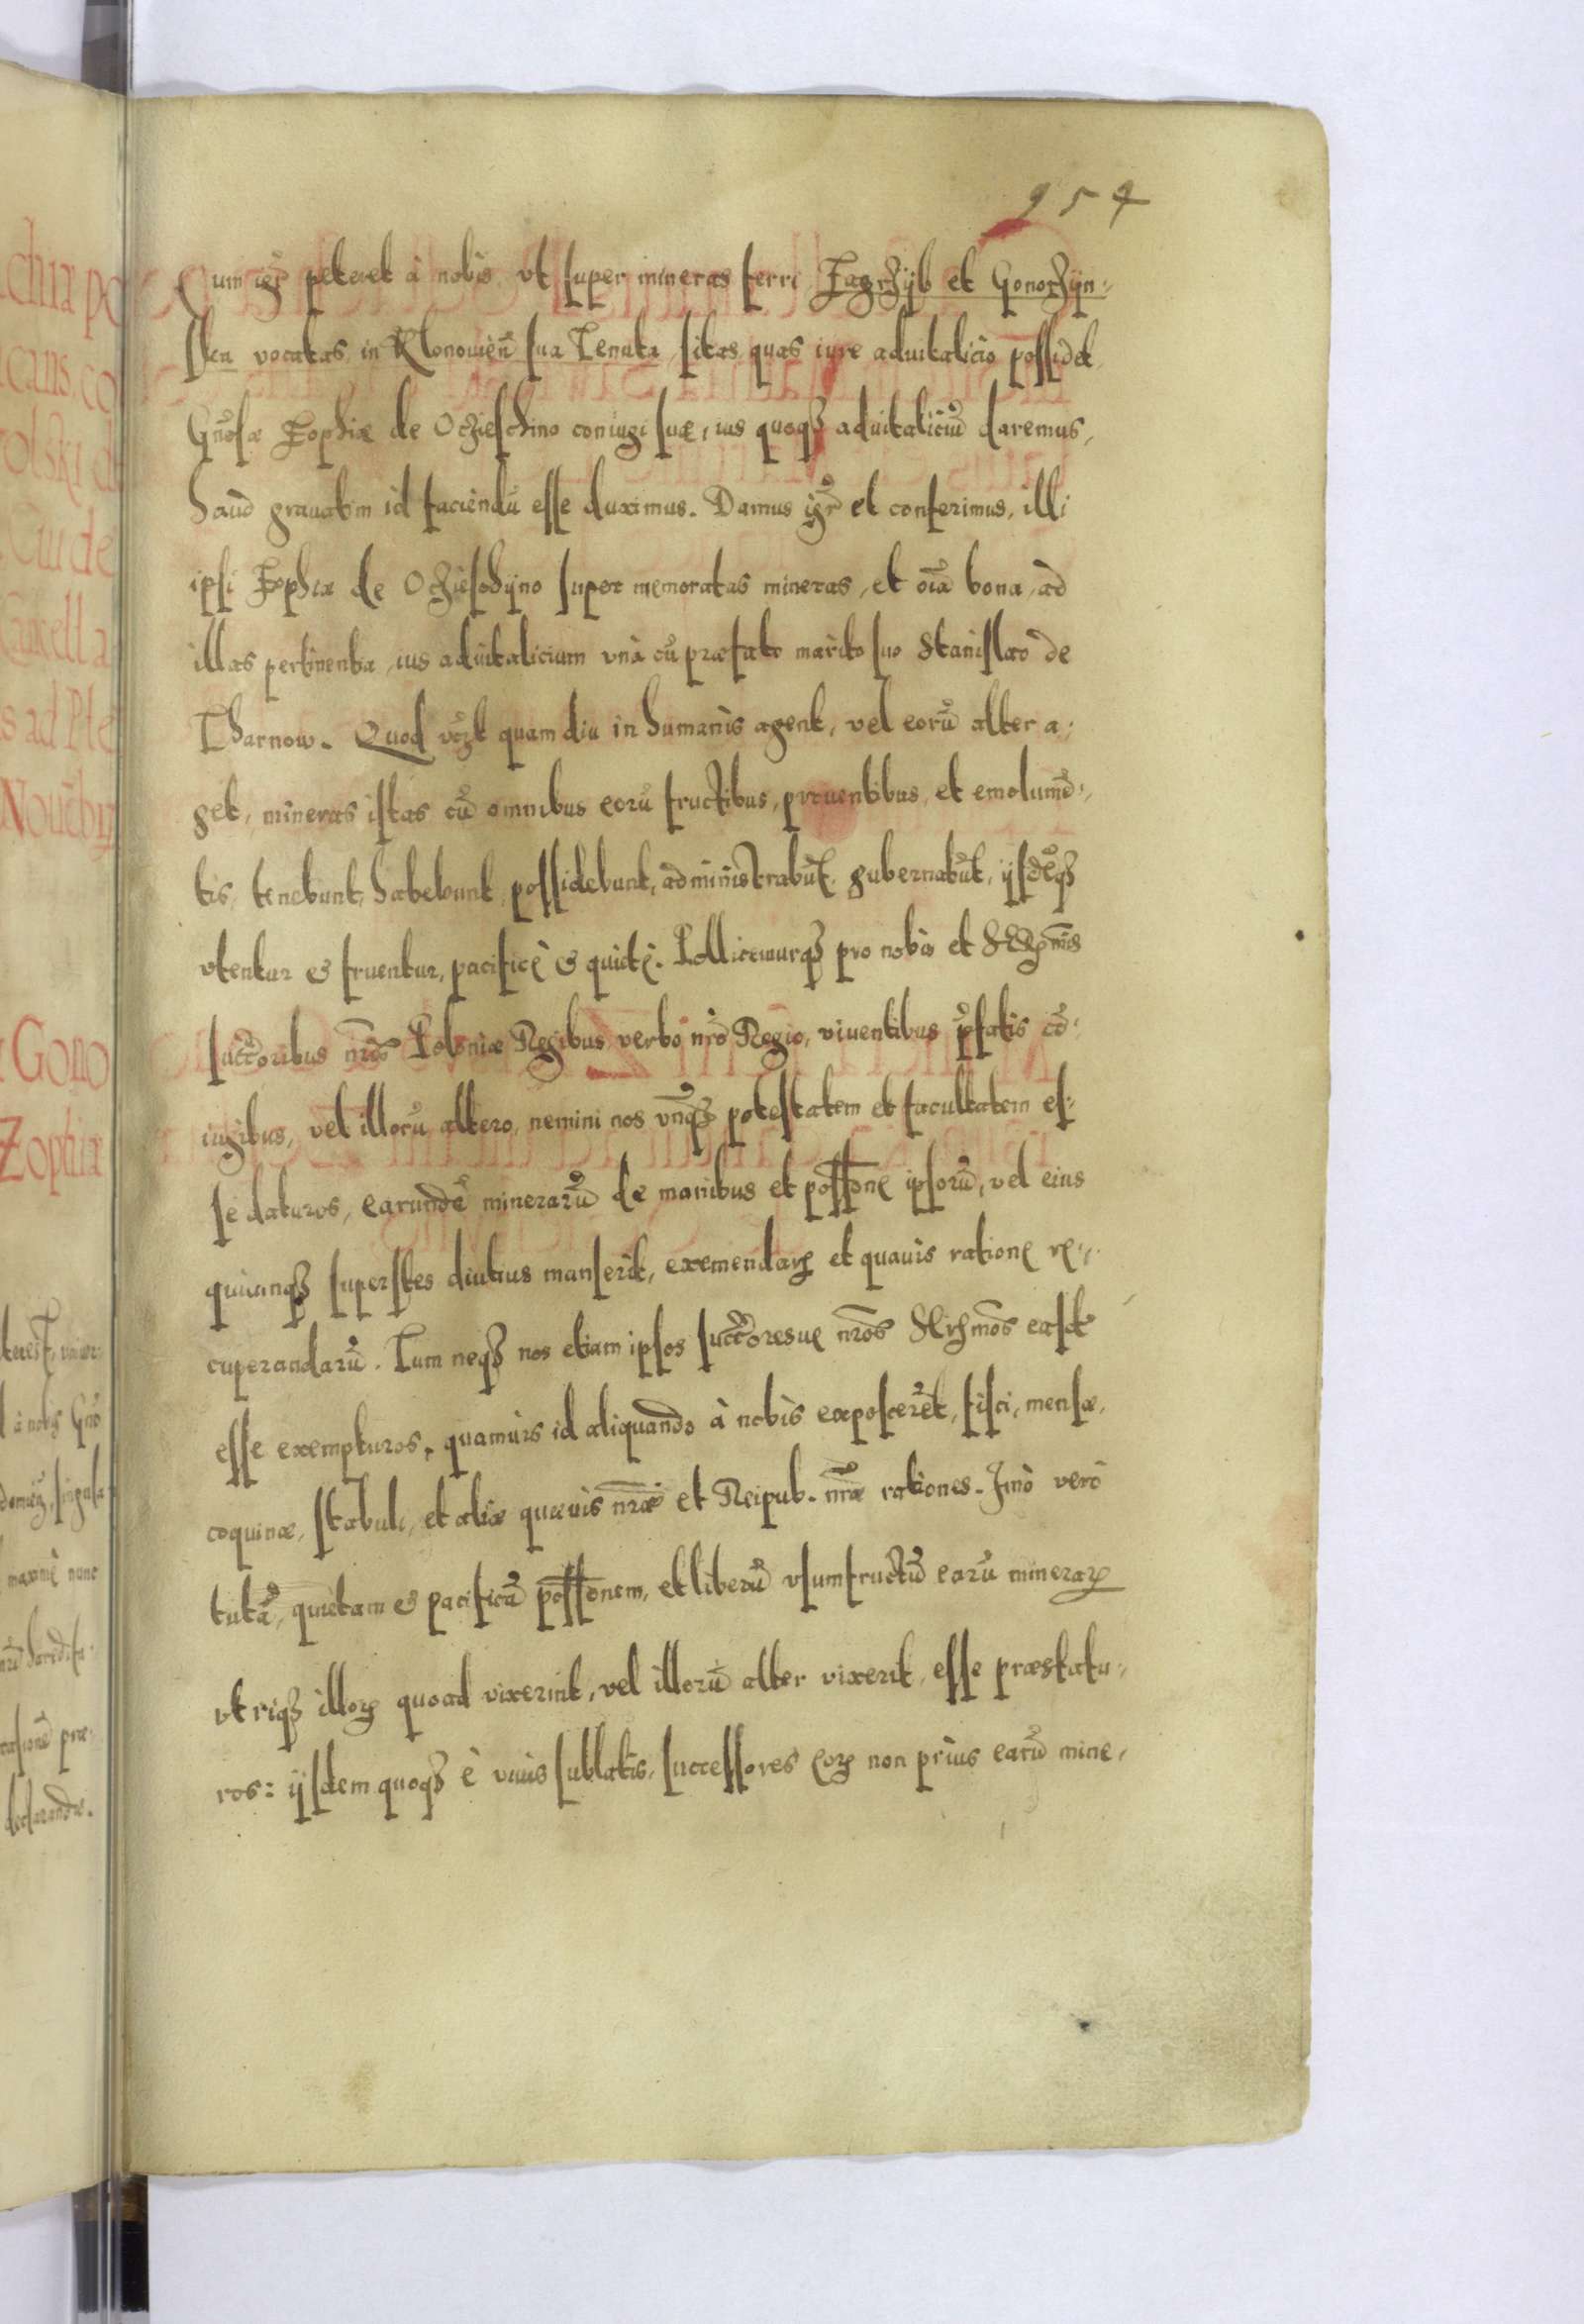 954
Cum igr̃ peteret à nobis vt super mineras ferri Zagrzÿb et Gonorzÿn-
sken vocatas in Klonouień sua Tenuta sitas quas iure aduitalicio possidet
Gñosæ Zophiæ de Oczieschino coniugi suæ, ius quoq3 aduitaliciũ daremus,
haud grauatim id faciendũ esse duximus. Damus igr̃ et conferimus, illi
ipsi Zophiæ de Oczieschÿno super memoratas mineras, et oĩa bona, ad
illas pertinentia, ius aduitalicium vnà cũ præfato marito suo Stanislao de
Tharnow. Quod vcz̃t quam diu in humanis agent, vel eorũ alter a-
get, mineras istas cũ omnibus eorũ fructibus, prouentibus, et emolumẽ-
tis, tenebunt, habebunt, possidebunt, administrabũt, gubernabũt, ijsdẽq3
vtentur & fruentur, pacificè & quietè. Pollicemurq3 pro nobis et Serẽmis
succ̃oribus nr̃is Poloniæ Regibus verbo nr̃o Regio, viuentibus p̃fatis cõ-
iugibus, vel illorũ altero, nemini nos vnq̃3 potestatem et facultatem es-
se daturos, earundẽ minerarũ de manibus et poss̃one ipsorũ, vel eius
quicunq3 superstes diutius manserit, exemendarꝝ et quauis ratione re-
cuperandarũ. Tum neq3 nos etiam ipsos succ̃oresue nr̃os Serẽmos easdẽ
esse exempturos, quamuis id aliquando à nobis exposcerẽt, fisci, mensæ,
coquinæ, stabuli, et aliæ quæuis nr̃æ et Reipub. nr̃æ rationes. Imò verò
tutã, quietam & pacificã poss̃onem, et liberũ vsumfructũ earũ minerarꝝ
vtriq3 illorꝝ quoad vixerint, vel illorũ alter vixerit, esse præstatu-
ros: ijsdem quoq3 è viuis sublatis, successores eorꝝ non prius earũ mine-